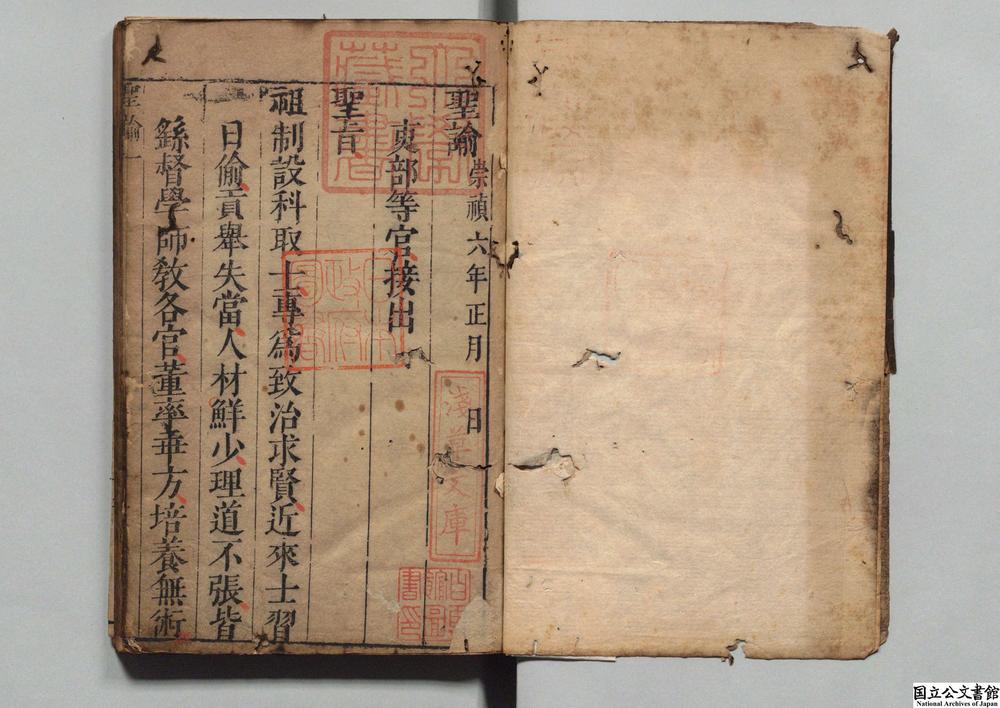 聖諭 崇禎六年正月 日
吏部等官接出
聖旨
祖制設科取士專爲致治求賢近來士習
日偷貢舉失當人材鮮少理道不張皆
繇督學師教各官董率乖方培養無術
聖諭 一
淺草文庫
日本政府圖書
国立公文書館
National Archives of Japan